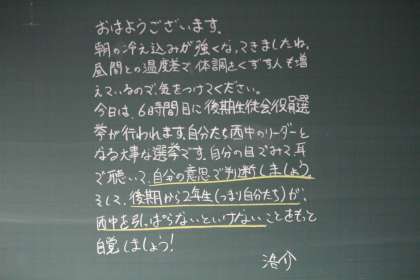 おはようございます。
朝の冷え込みが強くなってきましたね。
昼間との温度差で体調をくずす人も増
えているので気をつけてください。
今日は、6時間目に後期生徒会役員選
挙が行われます。自分たち西中のリーダーと
なる大事な選挙です。自分の目でみて、耳
で聴いて、自分の意思で判断しましょう。
そして、後期から2年生(つまり自分たち)が、
西中を引っぱらないといけないことをもっと
自覚しましょう!